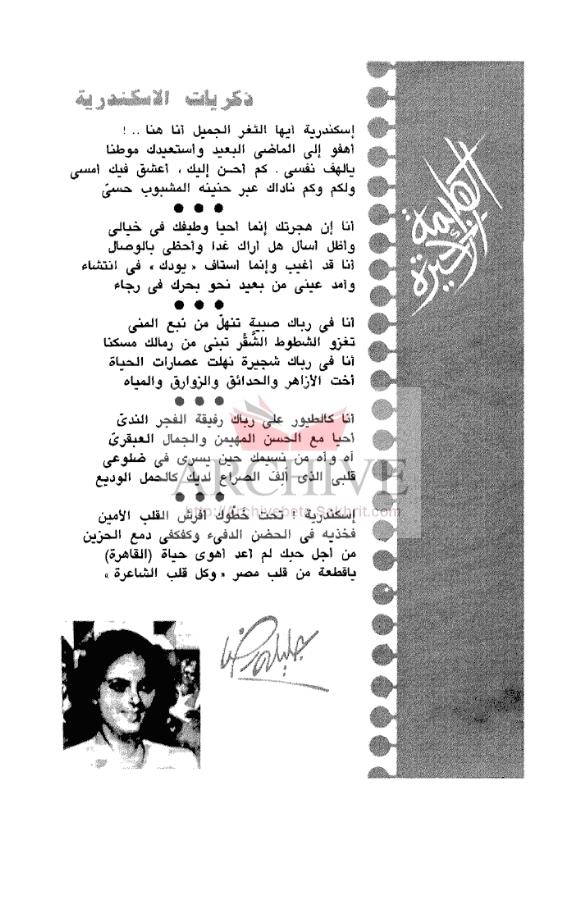 ذكريات الاسكندرية
الكلمة
الأخيرة
إسكندرية أيها الثغر الجميل أنا هنا .. !
أهفو إلى الماضى البعيد وأستعيدك موطنا
يالهف نفسى . كم أحن إليك ، أعشق فيك أمسى
ولكم وكم ناداك عبر حنينه المشبوب حسىّ
● ● ●
أنا إن هجرتك إنما أحيا وطيفك فى خيالى
وأظل أسأل هل أراك غدا وأحظى بالوصال
أنا قد أغيب وإنما أستاف « يودك » فى انتشاء
وأمد عينى من بعيد نحو بحرك فى رجاء
● ● ●
أنا فى رباك صبية تنهلّ من نبع المنى
تغزو الشطوط الشُّقْر تبنى من رمالك مسكنا
أنا فى رباك شجيرة نهلت عصارات الحياة
أخت الأزاهر والحدائق والزوارق والمياه
● ● ●
أنا كالطيور على رباك رفيقة الفجر الندىّ
أحيا مع الحسن المهيمن والجمال العبقرىّ
آه وآه من نسيمك حين يسرى فى ضلوعى
قلبى الذى ألِفَ الصراع لديك كالحمل الوديع
● ● ●
ARCHIVE
http://Archivebeta.Sakhrit.com
إسكندرية ! تحت خطوك أفرش القلب الأمين
فخذيه فى الحضن الدفىء وكفكفى دمع الحزين
من أجل حبك لم أعد أهوى حياة (القاهرة)
ياقطعة من قلب مصر « وكل قلب الشاعرة »
جليلة رضا